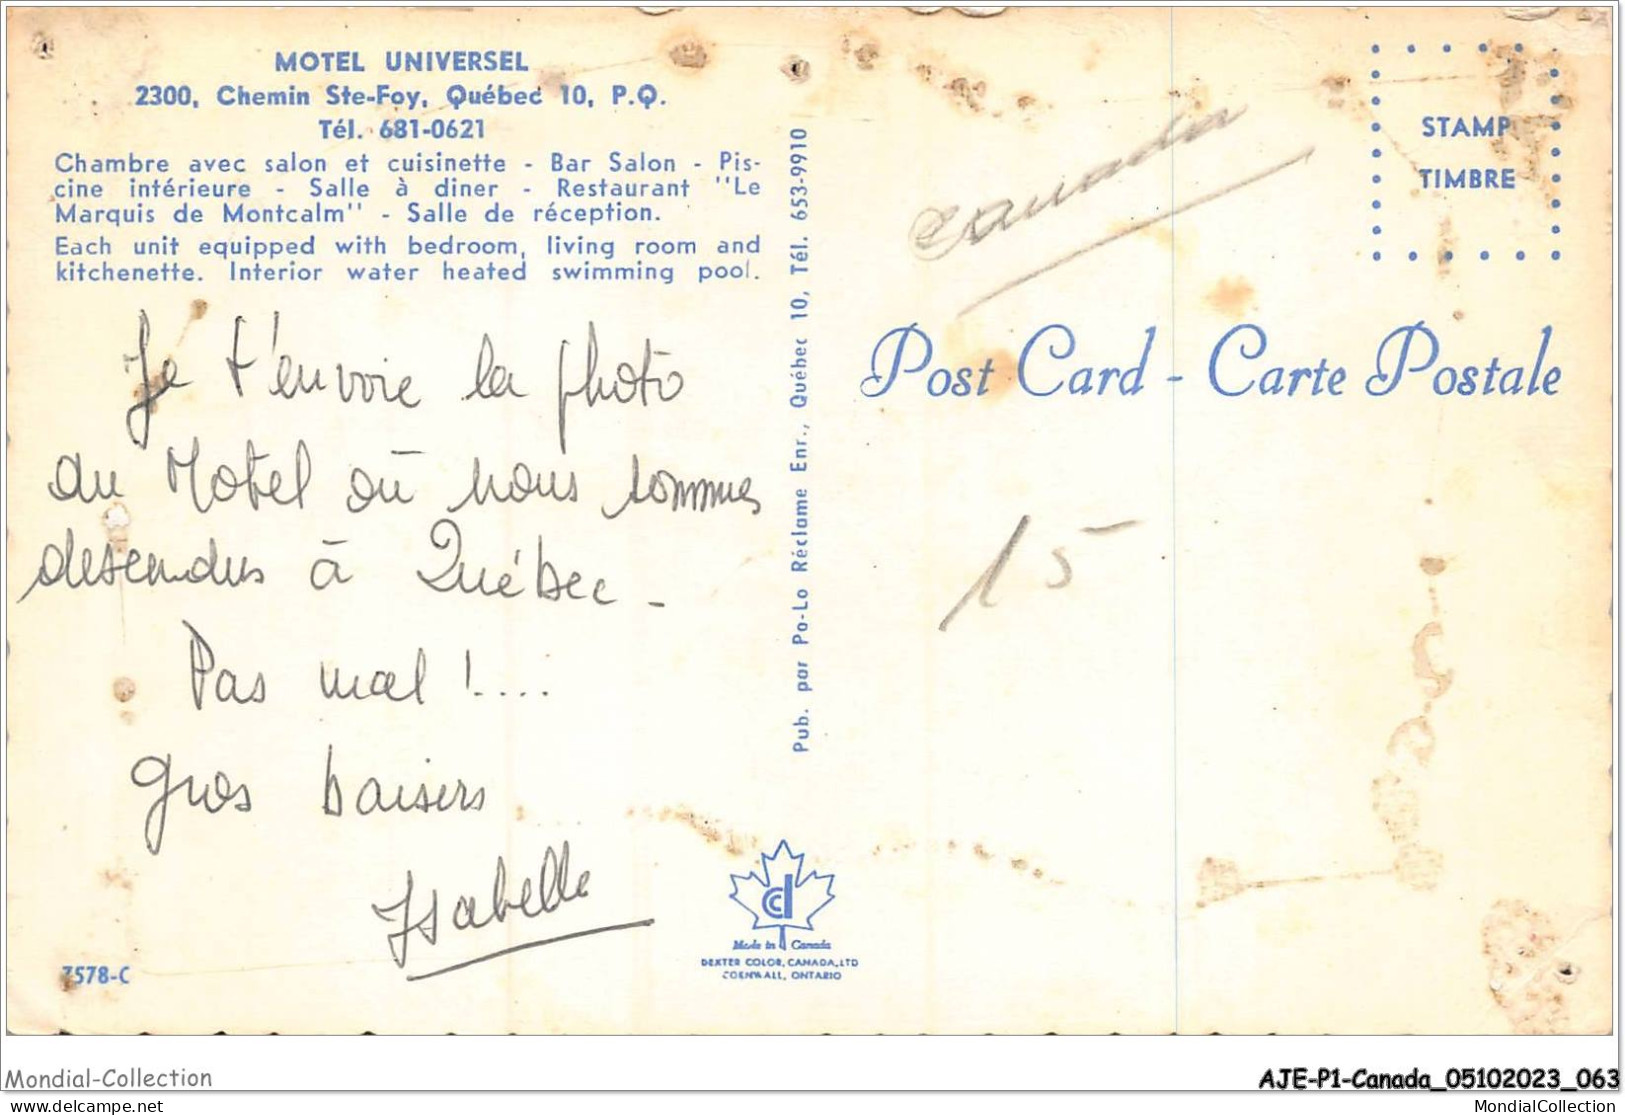 MOTEL UNIVERSEL
2300, Chemin Ste-Foy, Québec 10, P.Q.
Tél. 681-0621
Chambre avec salon et cuisinette - Bar Salon - Pis-
cine intérieure - Salle à diner - Restaurant "Le
Marquis de Montcalm" - Salle de réception.
Each unit equipped with bedroom, living room and
kitchenette. Interior water heated swimming pool.
Je t'envoie la photo
du Motel où nous sommes
desendus à Québec -
Pas mal !....
gros baisers
Isabelle
7578-C
Pub. par Pa-Lo Réclame Enr., Québec 10, Tél. 653-9910
Made in Canada
DEXTER COLOR, CANADA, LTD
CORNWALL, ONTARIO
canada
STAMP
TIMBRE
Post Card - Carte Postale
15
Mondial-Collection
AJE-P1-Canada_05102023_063
https://www.delcampe.net/fr/collections/store/Mondial-Collection
MondialCollection